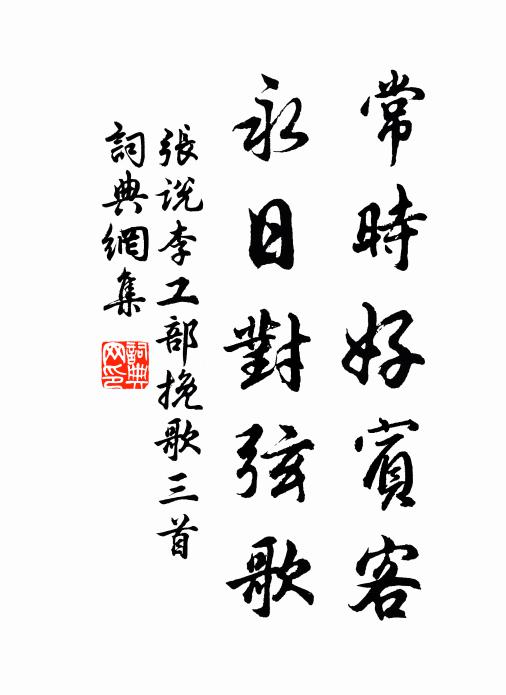 常時好賓客
永日對弦歌
張説李工部挽歌三首
詞典網集
詞典网印